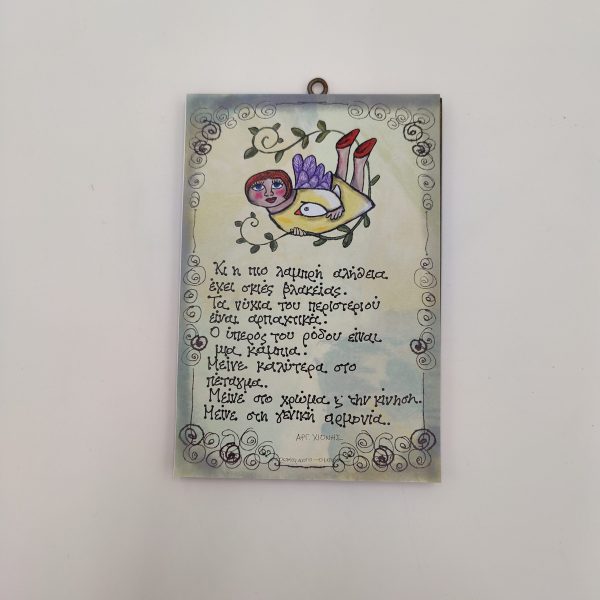 Κι η πιο λαμπρή αλήθεια
έχει σκιές βλακείας.
Τα νύχια του περιστεριού
είναι αρπαχτικά.
Ο ύπερος του ρόδου είναι
μια κάμπια.
Μείνε καλύτερα στο
πέταγμα..
Μείνε στο χρώμα ς την κίνηση..
Μείνε στη γενική αρμονία..
ΑΡΓ. ΧΙΟΝΗΣ